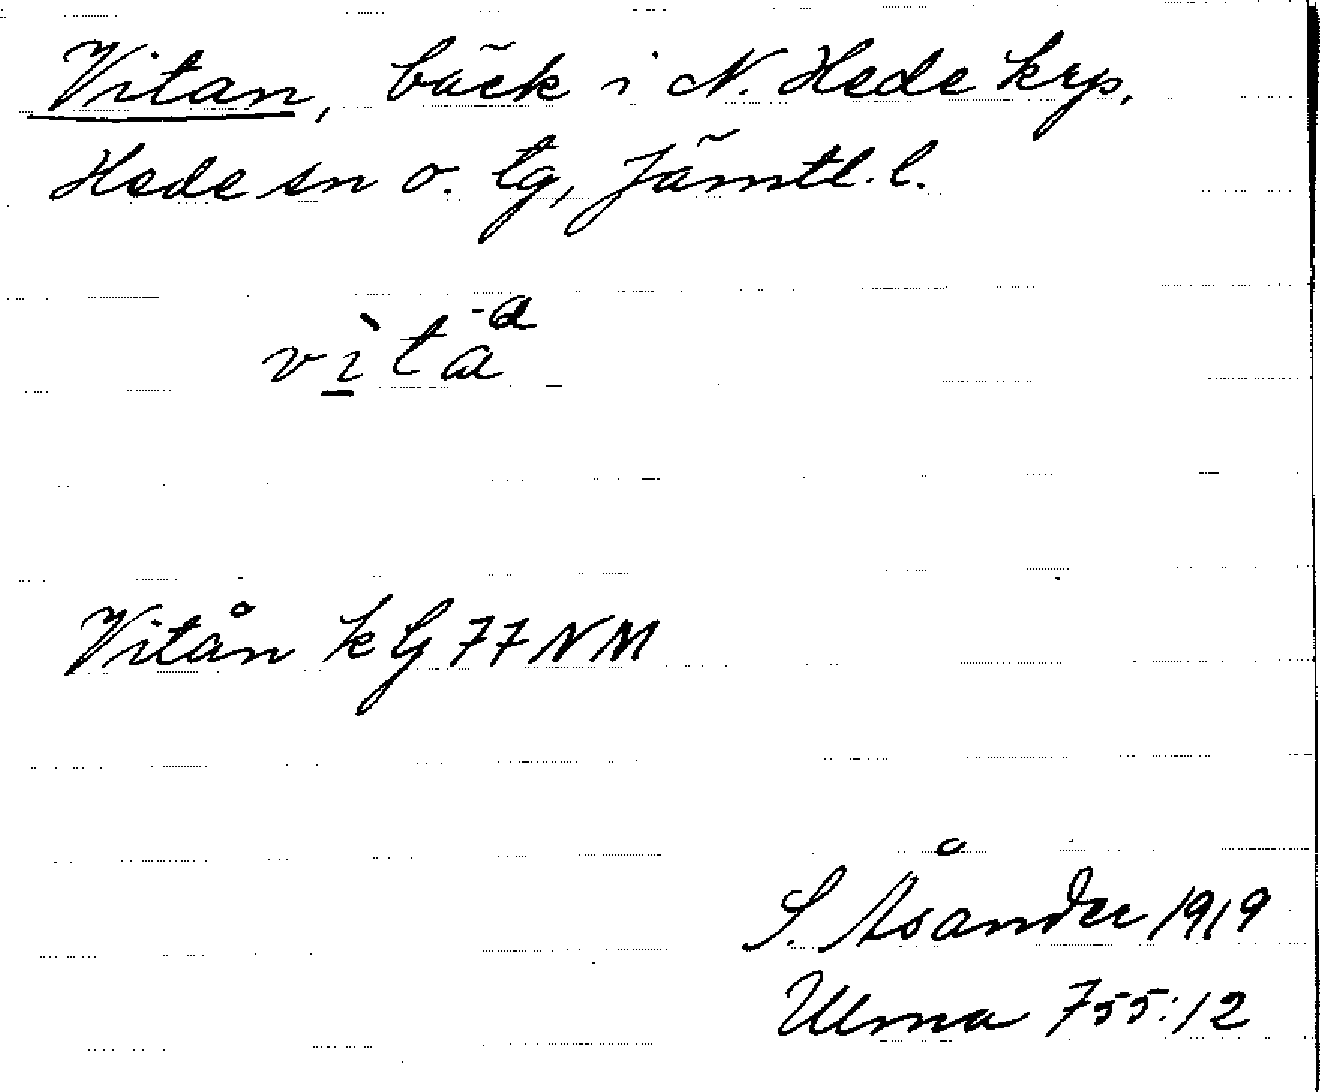 Vitan, bäck i N. Hede krp.
Hede sn o. tg, Jämtl. l.
vìta -a
Vitån k G 77 NM
S. Åsander 1919
Ulma 755:12